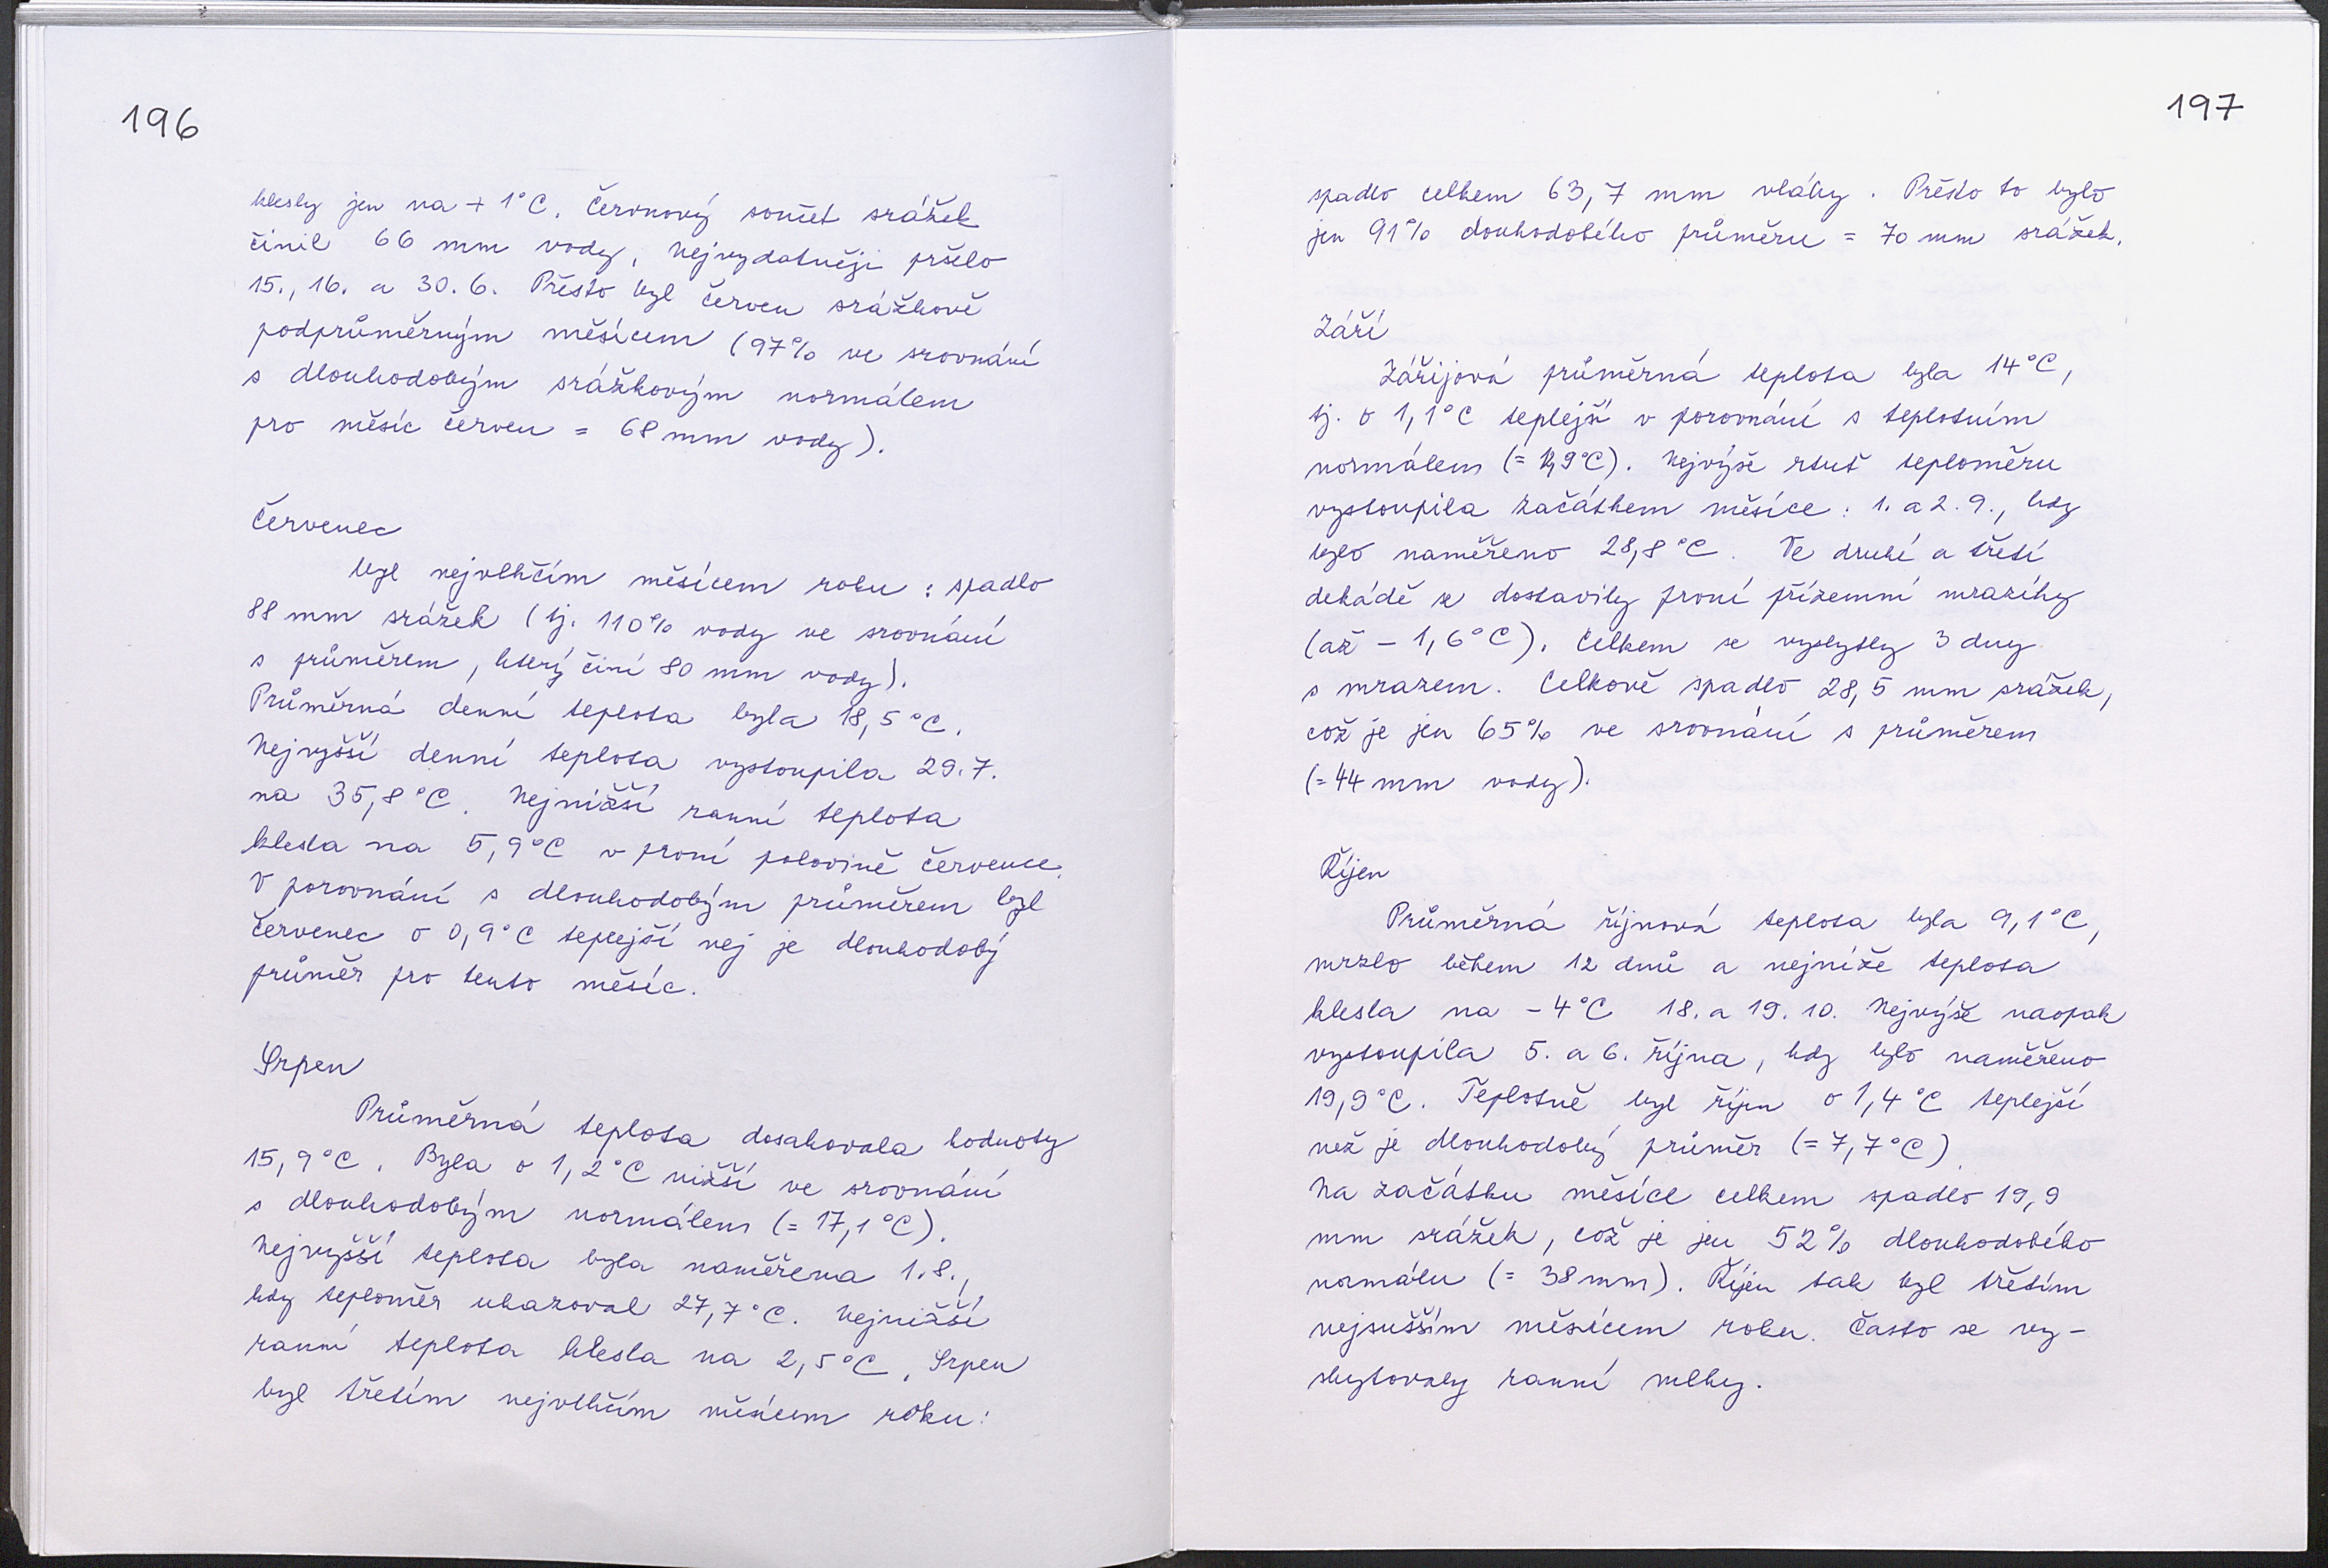 196
klesly jen na + 1°C. Červnový součet srážek
činil 66 mm vody. Nejvydatněji pršelo
15., 16. a 30. 6. Přesto byl červen srážkově
podprůměrným měsícem (97% ve srovnání
s dlouhodobým srážkovým normálem
pro měsíc červen = 68 mm vody).
Červenec
byl nejvlhčím měsícem roku : spadlo
88 mm srážek (tj. 110% vody ve srovnání
s průměrem, který činí 80 mm vody).
Průměrná denní teplota byla 18,5°C.
Nejvyšší denní teplota vystoupila 29.7.
na 35,8°C. Nejnižší ranní teplota
klesla na 5,9°C v první polovině července.
V porovnání s dlouhodobým průměrem byl
červenec o 0,9°C teplejší nej je dlouhodobý
průměr pro tento měsíc.
Srpen
Průměrná teplota dosahovala hodnoty
15,9°C. Byla o 1,2°C nižší ve srovnání
s dlouhodobým normálem (= 17,1°C).
Nejvyšší teplota byla naměřena 1.8.,
kdy teploměr ukazoval 27,7°C. Nejnižší
ranní teplota klesla na 2,5°C. Srpen
byl třetím nejvlhčím měsícem roku:
197
spadlo celkem 63,7 mm vláhy. Přesto to bylo
jen 91% douhodobého průměru = 70 mm srážek.
Září
Zářijová průměrná teplota byla 14°C,
tj. o 1,1°C teplejší v porovnání s teplotním
normálem (= 12,9°C). Nejvýše rtuť teploměru
vystoupila začátkem měsíce : 1. a 2. 9., kdy
bylo naměřeno 28,8°C. Ve druhé a třetí
dekádě se dostavily první přízemní mrazíky
(až - 1,6°C). Celkem se vyskytly 3 dny
s mrazem. Celkově spadlo 28,5 mm srážek,
což je jen 65% ve srovnání s průměrem
(= 44 mm vody).
Říjen
Průměrná říjnová teplota byla 9,1°C,
mrzlo během 12 dnů a nejníže teplota
klesla na - 4°C 18. a 19. 10. Nejvýše naopak
vystoupila 5. a 6. října, kdy bylo naměřeno
19,9°C. Teplotně byl říjen o 1,4°C teplejší
než je dlouhodobý průměr (= 7,7°C).
Na začátku měsíce celkem spadlo 19,9
mm srážek, což je jen 52% dlouhodobého
normálu (= 38 mm). Říjen tak byl třetím
nejsušším měsícem roku. Často se vy-
skytovaly ranní mlhy.